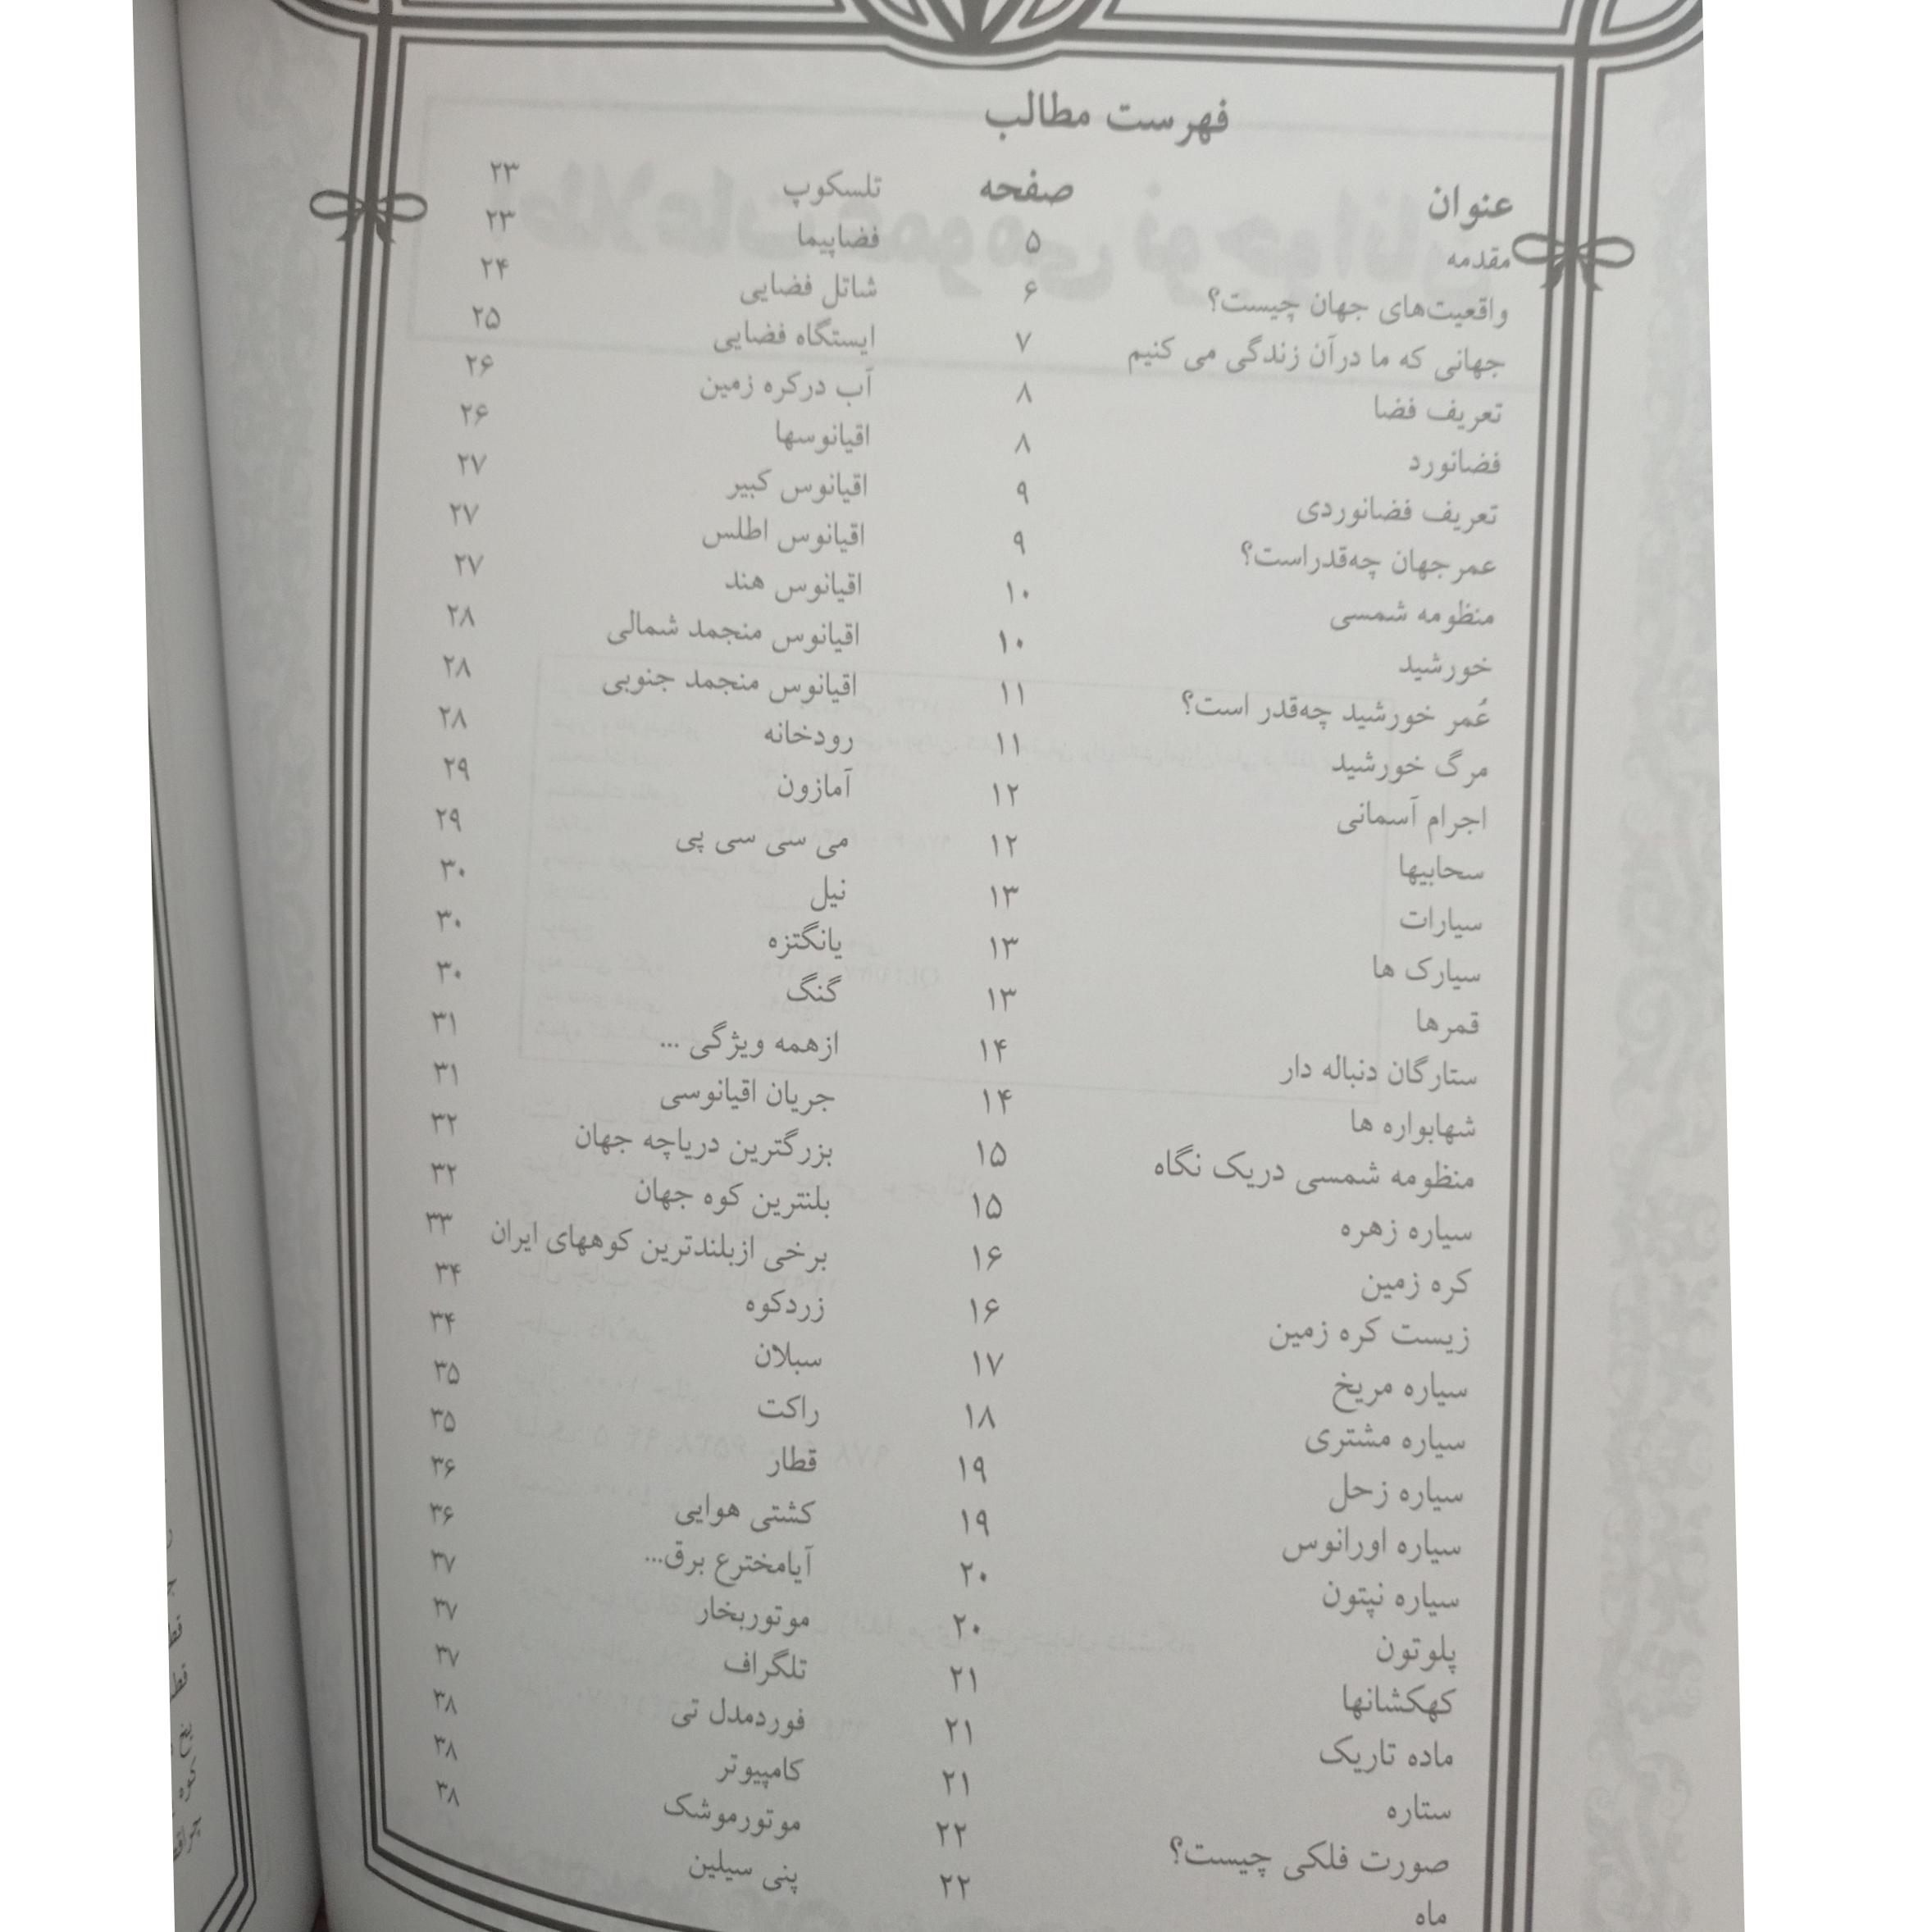 فهرست مطالب
عنوان صفحه
مقدمه ۵
واقعیت‌های جهان چیست؟ ۶
جهانی که ما درآن زندگی می کنیم ۷
تعریف فضا ۸
فضانورد ۸
تعریف فضانوردی ۹
عمرجهان چه‌قدراست؟ ۹
منظومه شمسی ۱۰
خورشید ۱۰
عُمر خورشید چه‌قدر است؟ ۱۱
مرگ خورشید ۱۱
اجرام آسمانی ۱۲
سحابیها ۱۲
سیارات ۱۳
سیارک ها ۱۳
قمرها ۱۳
ستارگان دنباله دار ۱۴
شهابواره ها ۱۴
منظومه شمسی دریک نگاه ۱۵
سیاره زهره ۱۵
کره زمین ۱۶
زیست کره زمین ۱۶
سیاره مریخ ۱۷
سیاره مشتری ۱۸
سیاره زحل ۱۹
سیاره اورانوس ۱۹
سیاره نپتون ۲۰
پلوتون ۲۰
کهکشانها ۲۱
ماده تاریک ۲۱
ستاره ۲۱
صورت فلکی چیست؟ ۲۲
ماه ۲۲
تلسکوپ ۲۳
فضاپیما ۲۳
شاتل فضایی ۲۴
ایستگاه فضایی ۲۵
آب درکره زمین ۲۶
اقیانوسها ۲۶
اقیانوس کبیر ۲۷
اقیانوس اطلس ۲۷
اقیانوس هند ۲۷
اقیانوس منجمد شمالی ۲۸
اقیانوس منجمد جنوبی ۲۸
رودخانه ۲۸
آمازون ۲۹
می سی سی پی ۲۹
نیل ۳۰
یانگتزه ۳۰
گنگ ۳۰
ازهمه ویژگی ... ۳۱
جریان اقیانوسی ۳۱
بزرگترین دریاچه جهان ۳۲
بلنترین کوه جهان ۳۲
برخی ازبلندترین کوههای ایران ۳۳
زردکوه ۳۴
سبلان ۳۴
راکت ۳۵
قطار ۳۵
کشتی هوایی ۳۶
آیامخترع برق... ۳۶
موتوربخار ۳۷
تلگراف ۳۷
فوردمدل تی ۳۷
کامپیوتر ۳۸
موتورموشک ۳۸
پنی سیلین ۳۸